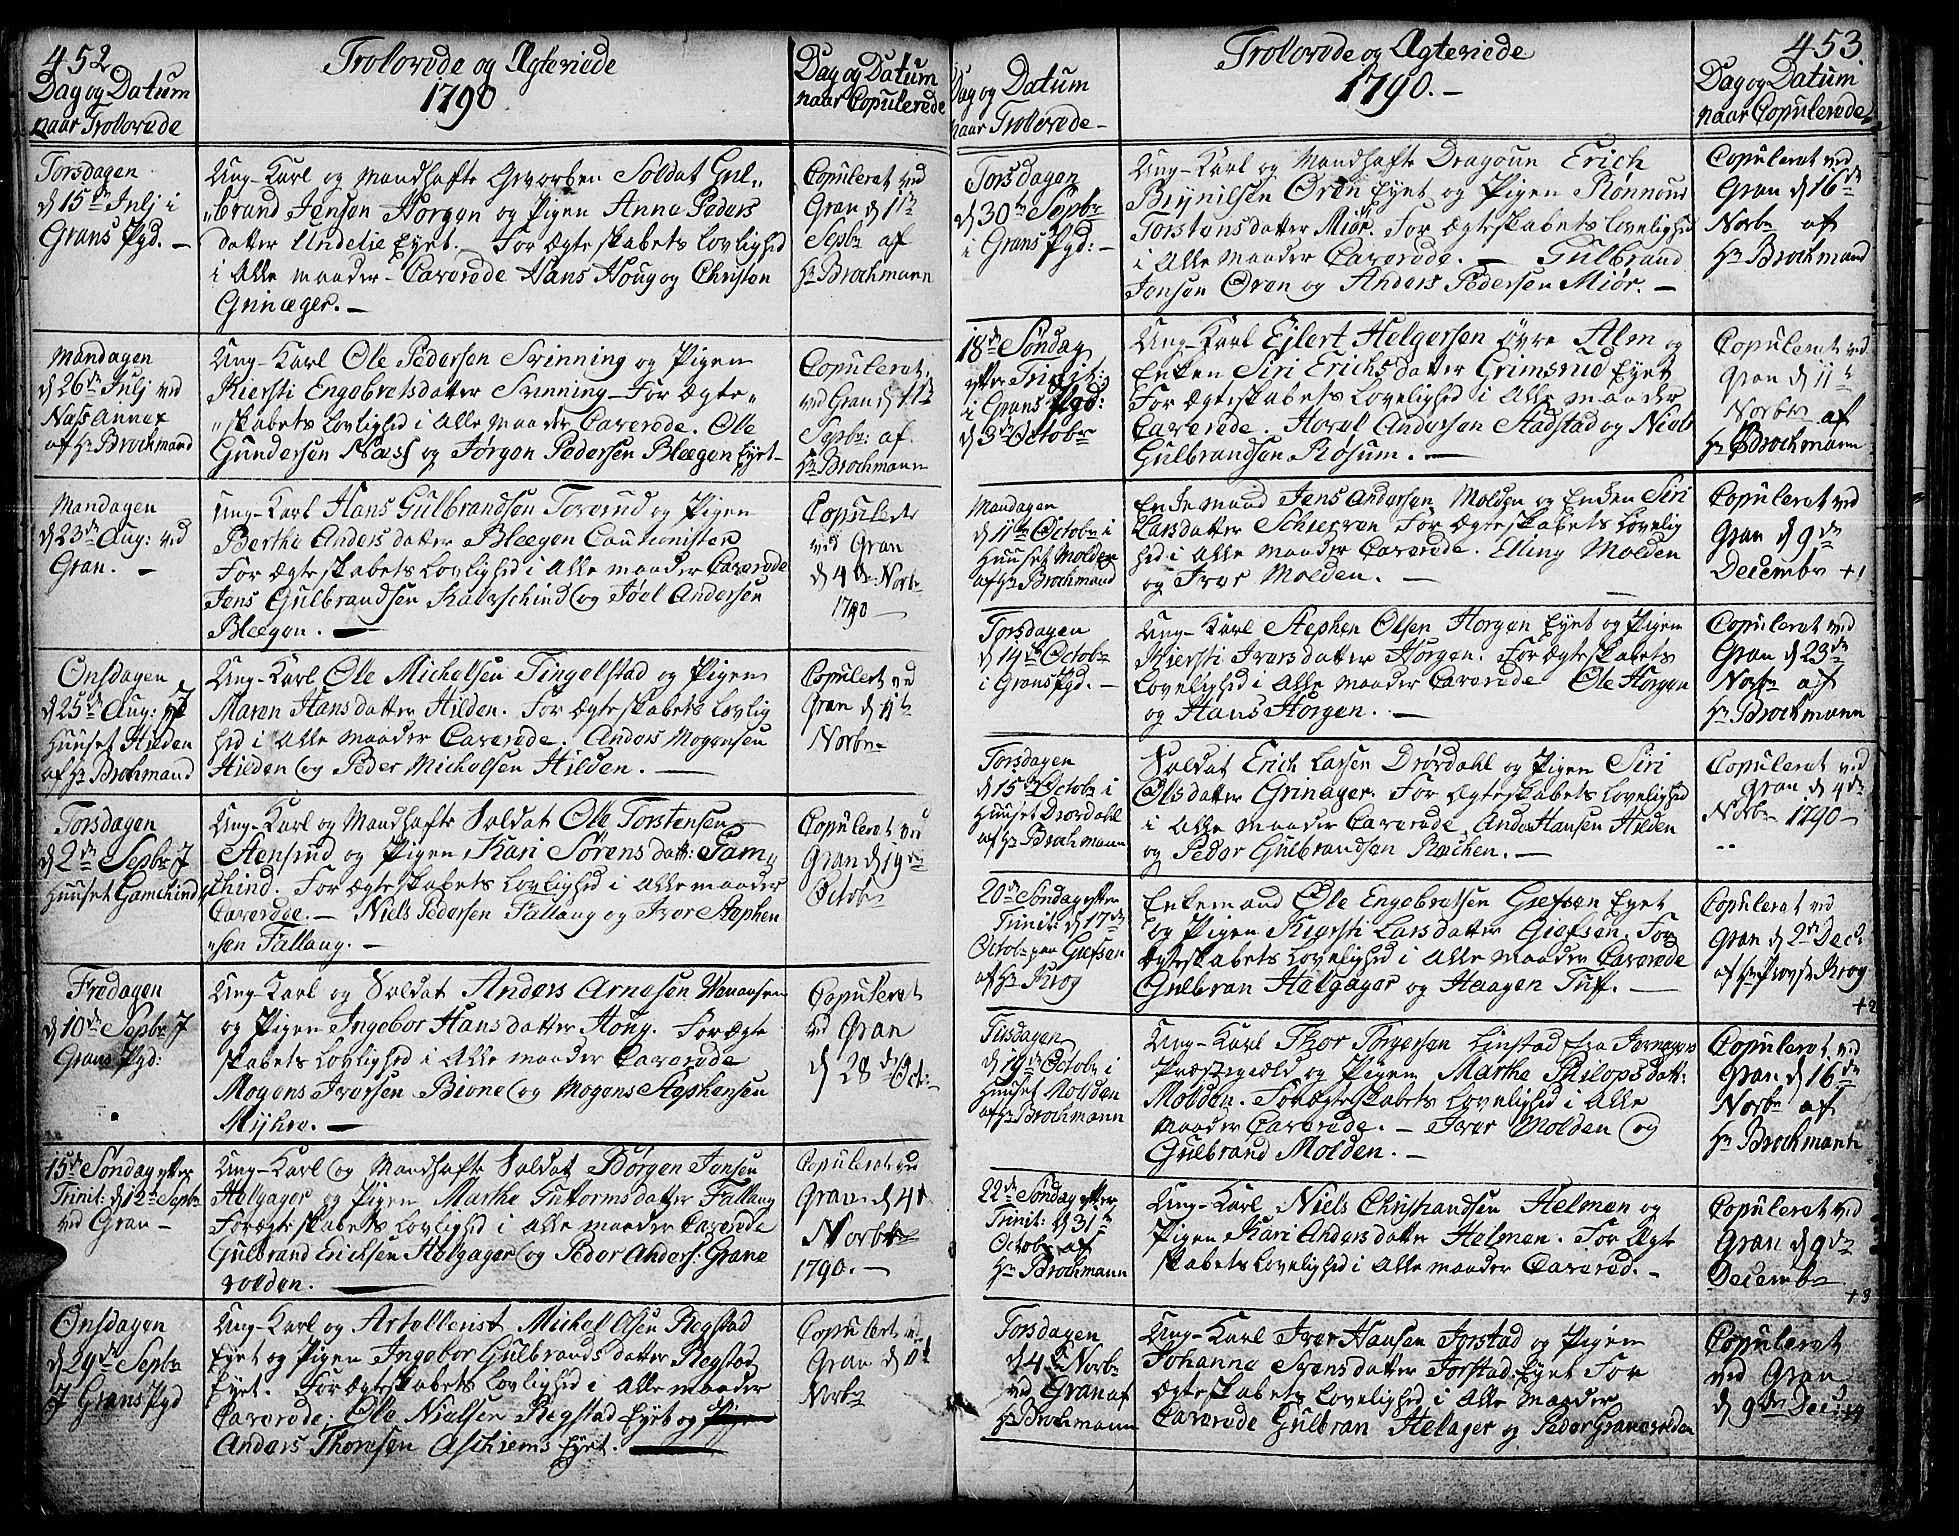 452
Dag og Datum
naar Trolovede
Trolovede og Ægteviede
1790
Dag og Datum
naar Copulerede
Torsdagen
d 15de Julj i
Grans Pgd. —
Ung-Karl og Mandhafte Gevorben Soldat Gul„
„brand Jensen Horgen og Pigen Anne Peders
datter Undelie Eyet. — For Ægteskabets Lovlighed
i Alle maader — Caverede Hans Houg og Christen
Grinager. —
Copuleret ved
Gran d 11te
Sepbr af
Hr Brochmann
Mandagen
d 26de Julj ved
Næss Annex
af Hr Brochmand
Ung-Karl Ole Pedersen Svinning og Pigen
Kiersti Engebretsdatter Svinning — For Ægte„
„skabets Lovlighed i Alle maader Caverede. Ole
Gundersen Næss og Jørgen Pedersen Bleegen Eyet —
Copuleret
ved Gran d 11te
Sepbr: af
Hr Brochmann
Mandagen
d 23de Aug: ved
Gran. —
Ung-Karl Hans Gulbrandsen Toverud og Pigen
Berthe Anders datter Bleegen Cautionister
For Ægteskabets Lovlighed i Alle maader Caverede
Jens Gulbrandsen Kaarschind og Joel Andersen
Bleegen. —
Copulede
ved Gran
d 4de Novbr
1790 —
Onsdagen
d 25de Aug: i
Huuset Hilden
af Hr Brochmand
Ung-Karl Ole Michelsen Tingelstad og Pigen
Maren Hans datter Hilden. For Ægteskabets Lovlig
hed i Alle maader Caverede. Anders Mogensen
Hilden og Peder Michelsen Hilden. —
Copuleret ved
Gran d 11te
Novbr
Torsdagen
d 2de Sepbr J
Huuset Gamschind
Ung-Karl og Mandhafte Soldat Ole Torstensen
Hensrud og Pigen Kari Sørens datt: Gam„
schind. For Ægteskabets Lovlighed i Alle maader
Caverede. — Niels Pedersen Fallang og Iver Stephen
„sen Fallang. —
Copuleret ved
Gran d 19de
Octobr
Fredagen
d 10de Sepbr J
Grans Pgd:
Ung-Karl og Soldat Anders Arnesen
og Pigen Ingebor Hans datter Houg. For Ægte
skabets Lovlighed i Alle maader Caverede
Mogens Iversen Bione og Mogens Stephensen
Myhre. —
Copuleret
ved Gran
d 28de Oct:
15de Søndag efter
Trinit: d 12te Sepbr
ved Gran —
Ung-Karl og Mandhafte Soldat Børgen Jonsen
Helgager og Pigen Marthe Gutormsdatter Fallang
For Ægteskabets Lovlighed i Alle maader Caverede
Gulbrand Ericksen Helgager og Peder Anders: Grane
volden. —
Copuleret ved
Gran d 4de
Novbr
1790. —
Onsdagen
d 29de Sepbr
J Grans Pgd
Ung-Karl og Artellerist Michel Olsen Regstad
Eyet og Pigen Ingebor Gulbrands datter Regstad
Eyet. For Ægteskabets Lovlighed i Alle maader
Caverede. Ole Nielsen Regstad Eyet og
Anders Thoresen Aschiems Eyet. —
Copuleret ved
Gran d 11te
Novbr
453.
Dag og Datum
naar Trolovede —
Trolovede og Ægteviede
1790. —
Dag og Datum
naar Copulerede
Torsdagen
d 30te Sepbr
i Grans Pgd: —
Ung-Karl og Mandhafte Dragoun Erich
Brynilsen Øren Eyet og Pigen Rønnoug
Torstens datter Miør. For Ægteskabets Lovelighed
i Alle maader Caverede. — Gulbrand
Jensen Øren og Anders Pedersen Miør. —
Copuleret ved
Gran d 16de
Novbr af
Hr Brochmand
18de Søndag
efter Trinit:
i Grans Pgd:
d 3de Octobr
Ung-Karl Ejlert Helgersen Øvre Alm og
Enken Siri Erichs datter Grimsrud Eyet
For Ægteskabets Lovelighed i Alle maader
Caverede. Hovel Andersen Stadstad og Niels
Gulbrandsen Røsum. —
Copuleret ved
Gran d 11te
Novbr af
Hr Brochmann
Mandagen
d 11te Octobr i
Huuset Molden
af Hr Brochmand
Enkemand Jens Andersen Molden og Enken Siri
Larsdatter Schierven For Ægteskabets Lovelig
hed i Alle maader Caverede. Elling Molden
og Iver Molden. —
Copuleret ved
Gran d 9de
Decembr +1
Torsdagen
d 14de Octobr
i Grans Pgd. —
Ung-Karl Stephen Olsen Horgen Eyet og Pigen
Kiersti Ivers datter Horgen. For Ægteskabets
Lovelighed i Alle maader Caverede Ole Horgen
og Hans Horgen. —
Copuleret ved
Gran d 23de
Novbr af
Hr Brochmann
Torsdagen
d 15de Octobr i
Huuset Drørdahl
af Hr Brochmann
Soldat Erich Larsen Drørdahl og Pigen Siri
Olsdatter Grinager. For Ægteskabets Lovelighed
i Alle maader Caverede. Anders Hansen Hilden
og Peder Gulbrandsen Rækken. —
Copuleret ved
Gran d 4de
Novbr 1790 —
20de Søndag efter
Trinit: d 17de
Octobr paa Giefsen
af Hr Krog
Enkemand Ole Engebretsen Giefsen Eyet
og Pigen Kiersti Lars datter Giefsen. For
Ægteskabets Lovelighed i Alle maader Caverede
Gulbran Helgager og Haagen Tuff. —
Copuleret ved
Gran d 2den Decbr
af Hr Provst Krog
+2
Tirsdagen
d 19de Octobr i
Huuset Molden
af Hr Brochmann
Ung-Karl Thor Torgersen Linstad fra Jevnagers
Præstegield og Pigen Marthe Philops datt:
Molden. For Ægteskabets Lovelighed i Alle
maader Caverede. — Iver Molden og
Gulbrand Molden. —
Copuleret ved
Gran d 16de
Novbr af
Hr Brochmann
22de Søndag efter
Trinit: d 31te
Octobr af
Hr Brochmann
Ung-Karl Niels Christiansen Helmen og
Pigen Kari Anders datter Helmen. For Ægte
skabets Lovelighed i Alle maader Caverede. —
Copuleret ved
Gran d 9de
Decembr
+3
Torsdagen
d 4de Novbr
ved Gran af
Hr Brochmann
Ung-Karl Iver Hansen Jorstad og Pigen
Johanne Svens datter Jorstad Eyet For
Ægteskabets Lovelighed i Alle maader
Caverede Gulbran Helager og Peder Granevolden
Copuleret
ved Gran
d 9de Dec: +4